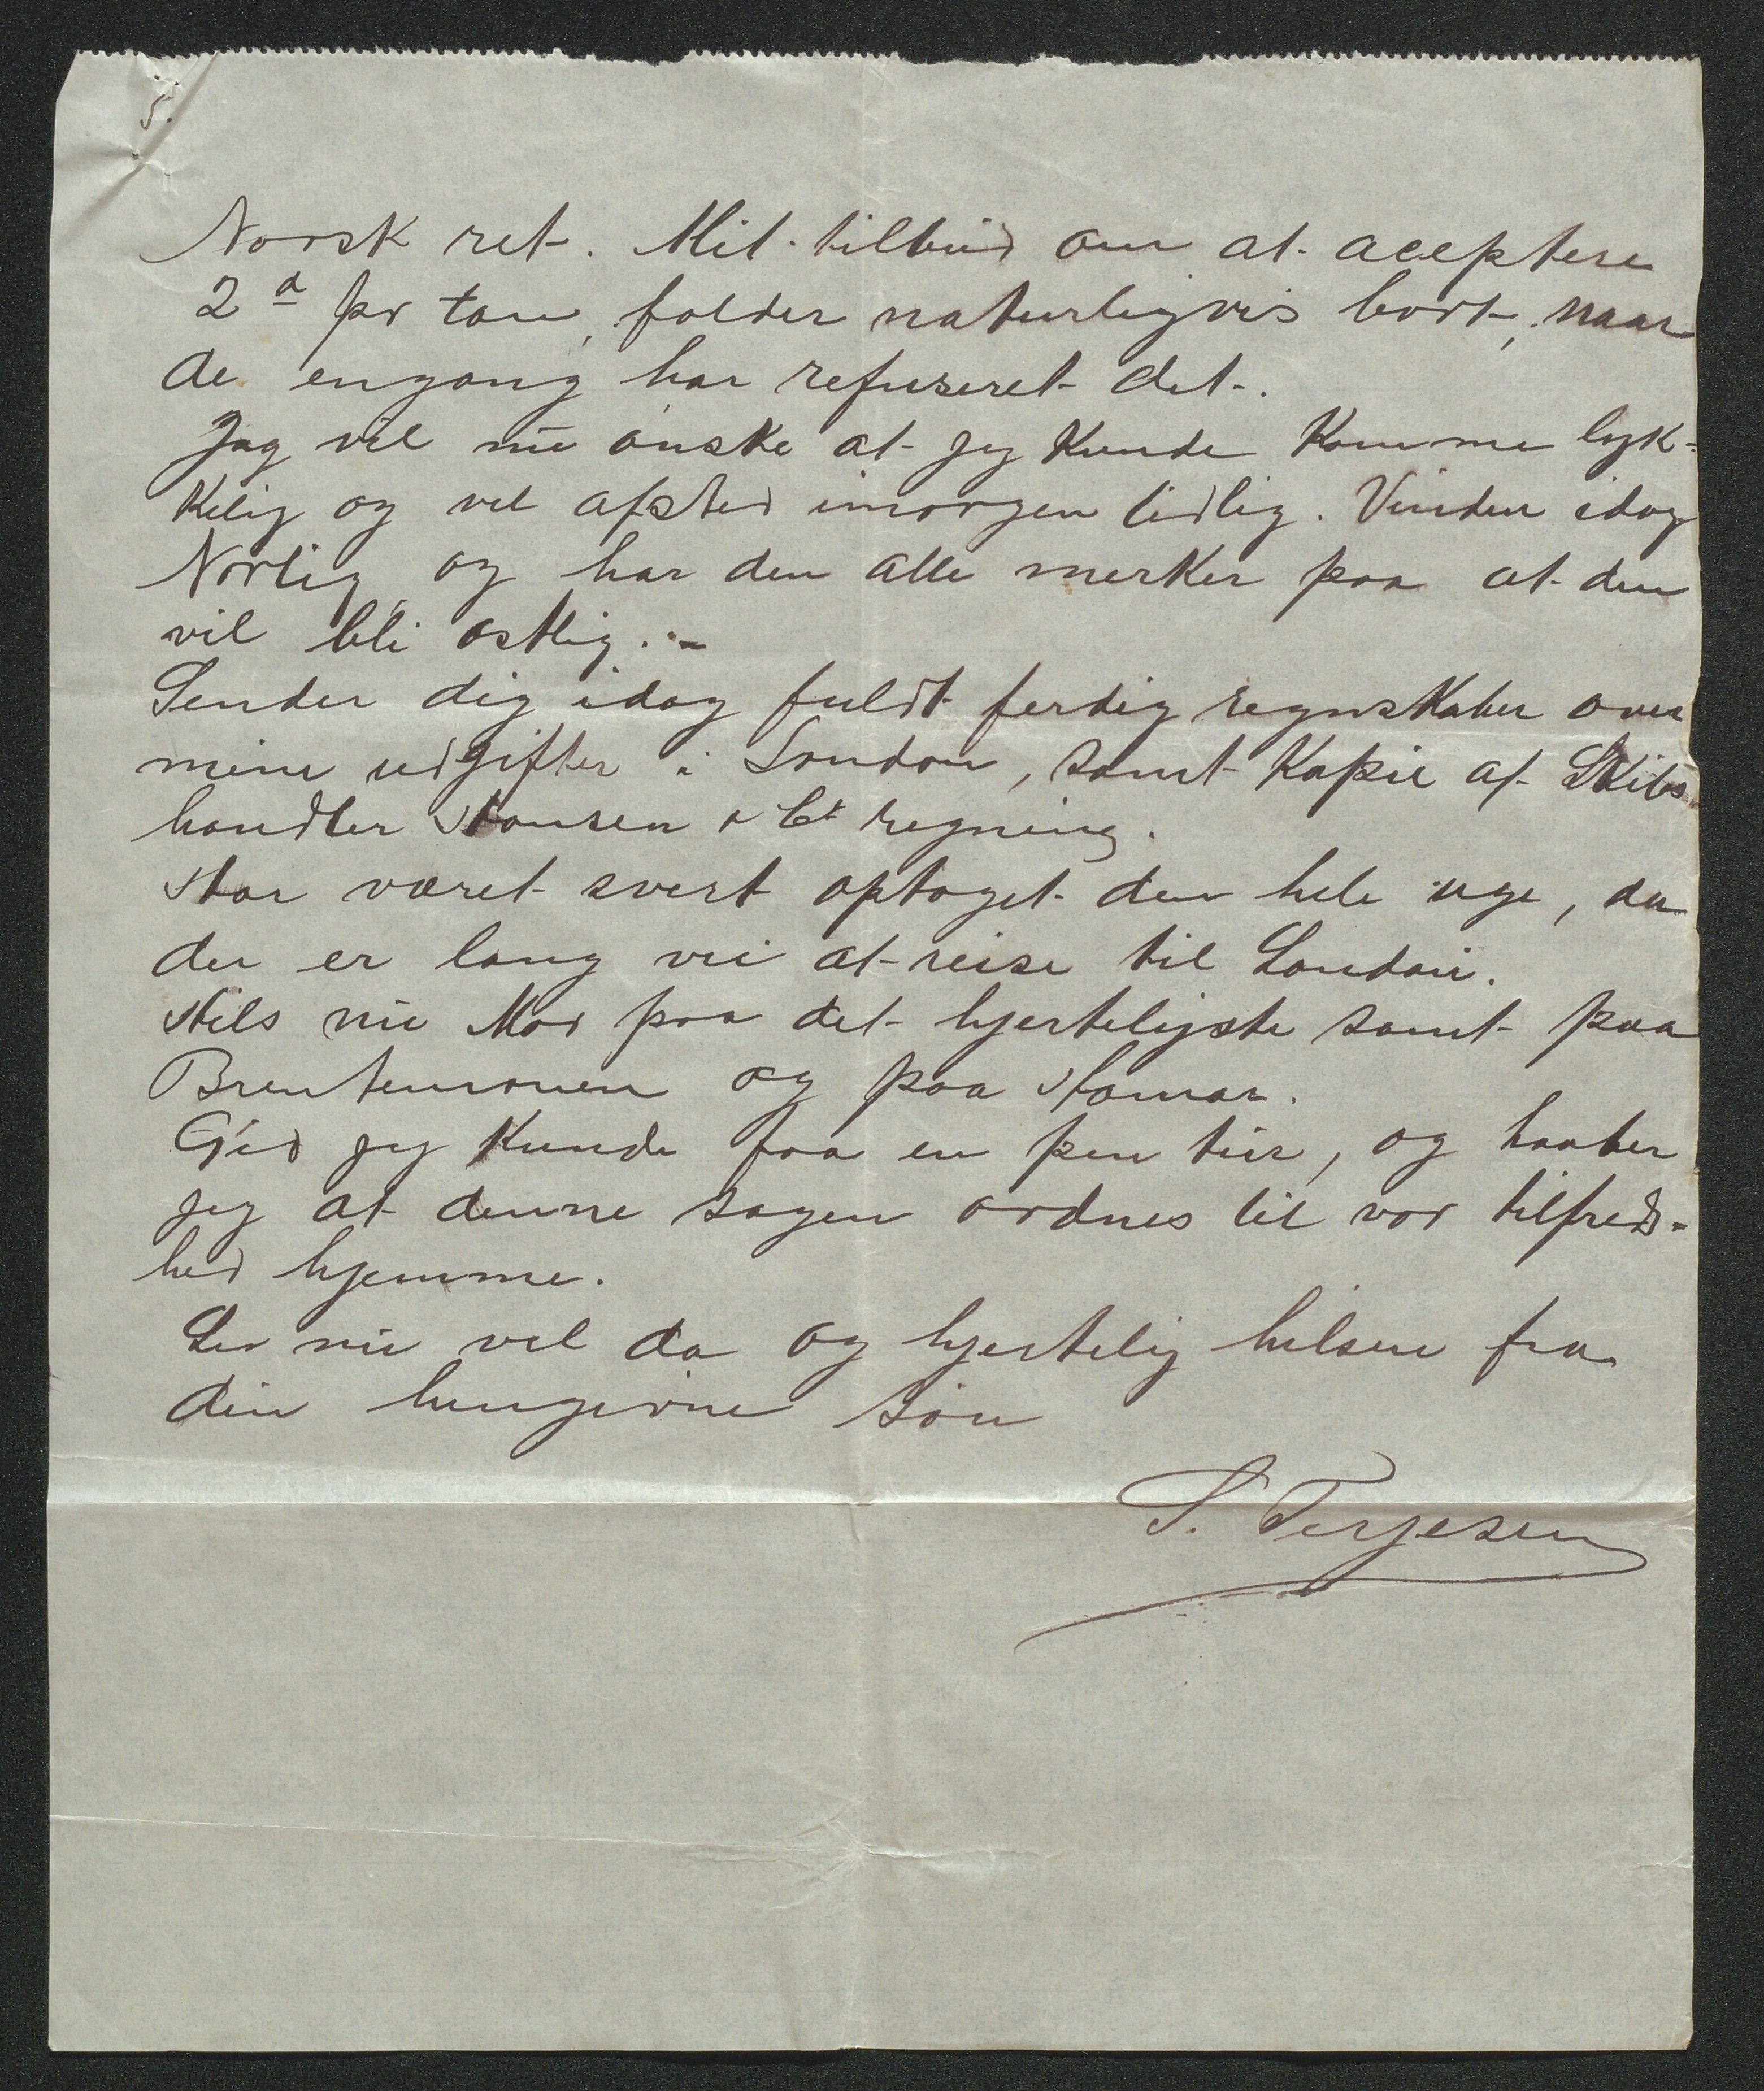 5.
Norsk ret. Mit tilbud om at aceptere
2d pr ton, falder naturligvis bort, naar
de engang har refuseret det.
Jeg vil nu ønske at jeg kunde komme lyk-
kelig og vel afsted imorgen tidlig. Vinden idag
Nortlig, og har den alle merker paa at den
vil bli ostlig. -
Sender dig idag fuldt ferdig regnskaber over
mine udgifter i London, samt Kopie af Skibs
handler Hansen & Co regning.
Har været svert optaget den hele uge, da
der er lang vei at reise til London.
Hils nu Mor paa det hjerteligste samt paa
Brentemoen og paa Homar.
Gid jeg kunde faa en pen tur, og haaber
jeg at denne sagen ordnes til vor tilfreds-
hed hjemme.
Lev nu vel da og hjertelig hilsen fra
din hengivne søn
S. Terjesen